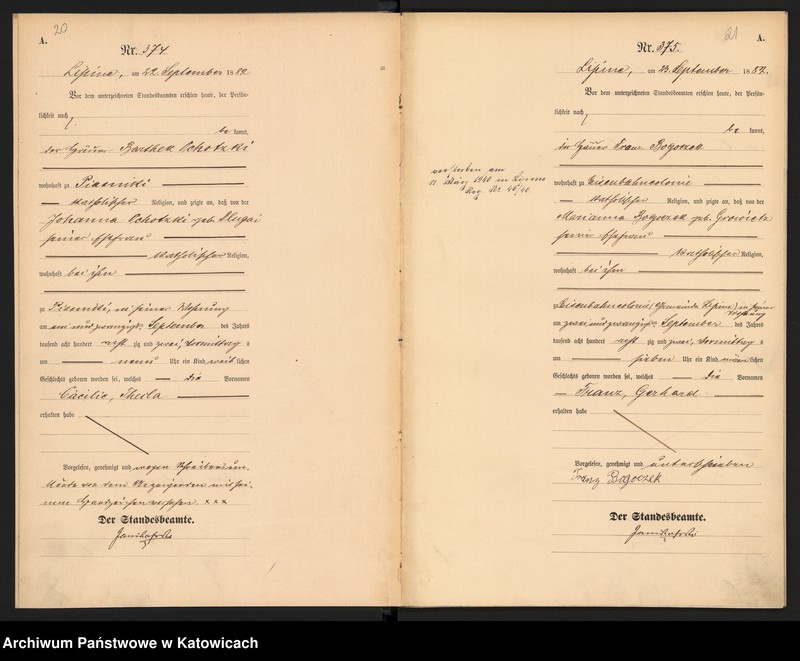 20
A.
Nr. 374.
Lipine, am 22. September 1882
Vor dem unterzeichneten Standesbeamten erschien heute, der Persön-
lichkeit nach
be kannt,
der Häuer Barthek Ochotzki
wohnhaft zu Piasniki
katholischer Religion, und zeigte an, daß von der
Johanna Ochotzki geb. Dlugai
seiner Ehefrau
katholischer Religion,
wohnhaft bei ihm
zu Piasniki, in seiner Wohnung
am ein und zwanzigsten September des Jahres
tausend acht hundert acht zig und zwei, Vormittag s
um neun Uhr ein Kind weib lichen
Geschlechts geboren worden sei, welches die Vornamen
Cäcilie, Thekla
erhalten habe
Vorgelesen, genehmigt und wegen Schreibensun-
kunde von dem Anzeigenden mit sei-
nem Handzeichen versehen. x x x
Der Standesbeamte.
verstorben am
11. März 1940 in
Reg Nr 46/40
21
A.
Nr. 375.
Lipine, am 23. September 1882.
Vor dem unterzeichneten Standesbeamten erschien heute, der Persön-
lichkeit nach
be kannt,
der Häuer Franz Bogoczek
wohnhaft zu Eisenbahncolonie
katholischer Religion, und zeigte an, daß von der
Marianna Bogoczek geb.
seiner Ehefrau
katholischer Religion,
wohnhaft bei ihm
zu Eisenbahncolonie (Gemeinde Lipine) in seiner
Wohnung
am zwei und zwanzigsten September des Jahres
tausend acht hundert acht zig und zwei, Vormittag s
um sieben Uhr ein Kind männ lichen
Geschlechts geboren worden sei, welches die Vornamen
Franz, Gerhard
erhalten habe
Vorgelesen, genehmigt und unterschrieben
Franz Bogoczek
Der Standesbeamte.
Archiwum Państwowe w Katowicach